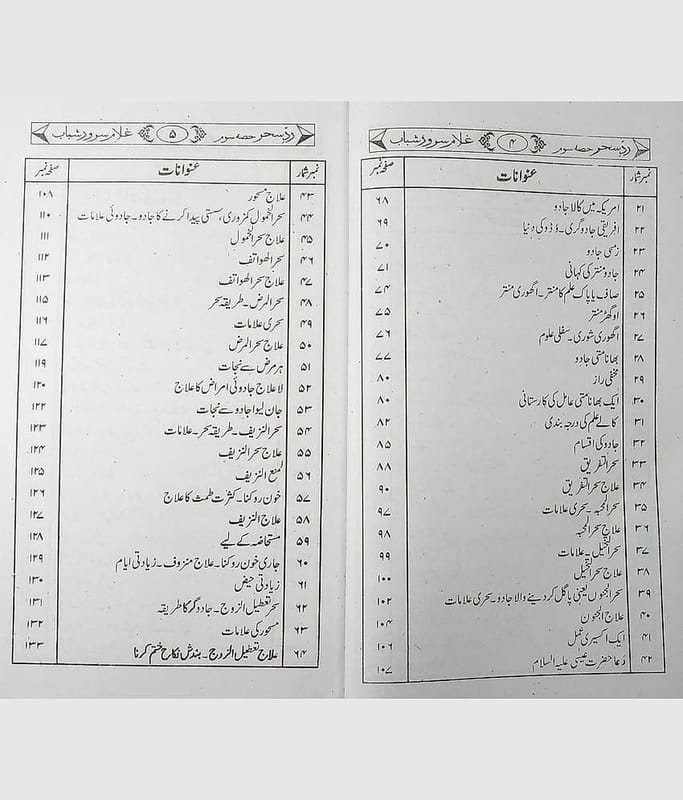 ردِ سحر حصہ سوم ۴ غلام سرور شباب
نمبر شمار عنوانات صفحہ نمبر
۲۱ امریکہ میں کالا جادو ۶۸
۲۲ افریقی جادوگری۔ وُڈو کی دنیا ۶۹
۲۳ رسمی جادو ۷۰
۲۴ جادو منتر کی کہانی ۷۱
۲۵ صاف یا پاک علم کا منتر۔ اگھوری منتر ۷۴
۲۶ اوگھڑ منتر ۷۵
۲۷ اگھوری شوری۔ سفلی علوم ۷۶
۲۸ بھانا متی جادو ۷۷
۲۹ مخفی راز ۸۰
۳۰ ایک بھانا متی عامل کی کارستانی ۸۰
۳۱ کالے علم کی درجہ بندی ۸۲
۳۲ جادو کی اقسام ۸۵
۳۳ سحر التفریق ۸۸
۳۴ علاج سحر التفریق ۹۰
۳۵ سحر المحبہ۔ سحری علامات ۹۷
۳۶ علاج سحر المحبہ ۹۸
۳۷ سحر التخیل۔ علامات ۹۹
۳۸ علاج سحر التخیل ۱۰۰
۳۹ سحر الجنون یعنی پاگل کر دینے والا جادو۔ سحری علامات ۱۰۲
۴۰ علاج الجنون ۱۰۴
۴۱ ایک اکسیری عمل ۱۰۶
۴۲ دُعا حضرت عیسیٰ علیہ السلام ۱۰۷
ردِ سحر حصہ سوم ۵ غلام سرور شباب
نمبر شمار عنوانات صفحہ نمبر
۴۳ علاج مسحور ۱۰۸
۴۴ سحر الخمول کمزوری، سستی پیدا کرنے کا جادو۔ جادوئی علامات ۱۱۰
۴۵ علاج سحر الخمول ۱۱۱
۴۶ سحر الھواتف ۱۱۲
۴۷ علاج سحر الھواتف ۱۱۳
۴۸ سحر المرض۔ طریقہ سحر ۱۱۵
۴۹ سحری علامات ۱۱۶
۵۰ علاج سحر المرض ۱۱۷
۵۱ ہر مرض سے نجات ۱۱۹
۵۲ لاعلاج جادوئی امراض کا علاج ۱۲۰
۵۳ جان لیوا جادو سے نجات ۱۲۲
۵۴ سحر النزیف۔ طریقہ سحر۔ علامات ۱۲۳
۵۵ علاج سحر النزیف ۱۲۴
۵۶ لمنع النزیف ۱۲۵
۵۷ خون روکنا۔ کثرت طمث کا علاج ۱۲۶
۵۸ علاج النزیف ۱۲۷
۵۹ مستحاضہ کے لیے ۱۲۸
۶۰ جاری خون روکنا۔ علاج منزوف۔ زیادتی ایام ۱۲۹
۶۱ زیادتی حیض ۱۳۰
۶۲ سحر تعطیل الزوج۔ جادوگر کا طریقہ ۱۳۱
۶۳ مسحور کی علامات ۱۳۲
۶۴ علاج تعطیل الزوج۔ بندش نکاح ختم کرنا ۱۳۳